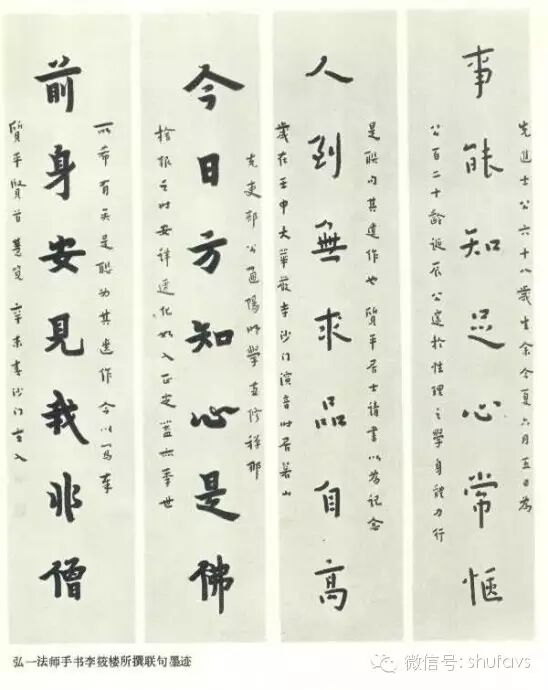 先進士公六十八歲生余今夏六月五日為
事能知足心常惬
公百二十齡誕辰公邃於性理之學身體力行
是聯句其遺作也 質平居士請書以為記念
人到無求品自高
歲在壬申大華嚴寺沙門演音時居山
先吏部公陽明學修禪那
今日方知心是佛
捨報之時安詳遷化如入正定蓋亦季世
所希有矣是聯為其遺作書以寫奉
前身安見我非僧
質平賢首慧覽 辛未春沙門
弘一法师手书李筱楼所撰联句墨迹
微信号: shufavs